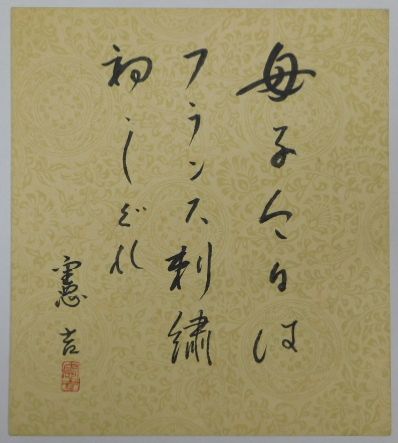 母子今日は
フランス刺繍
初しぐれ
憲吉